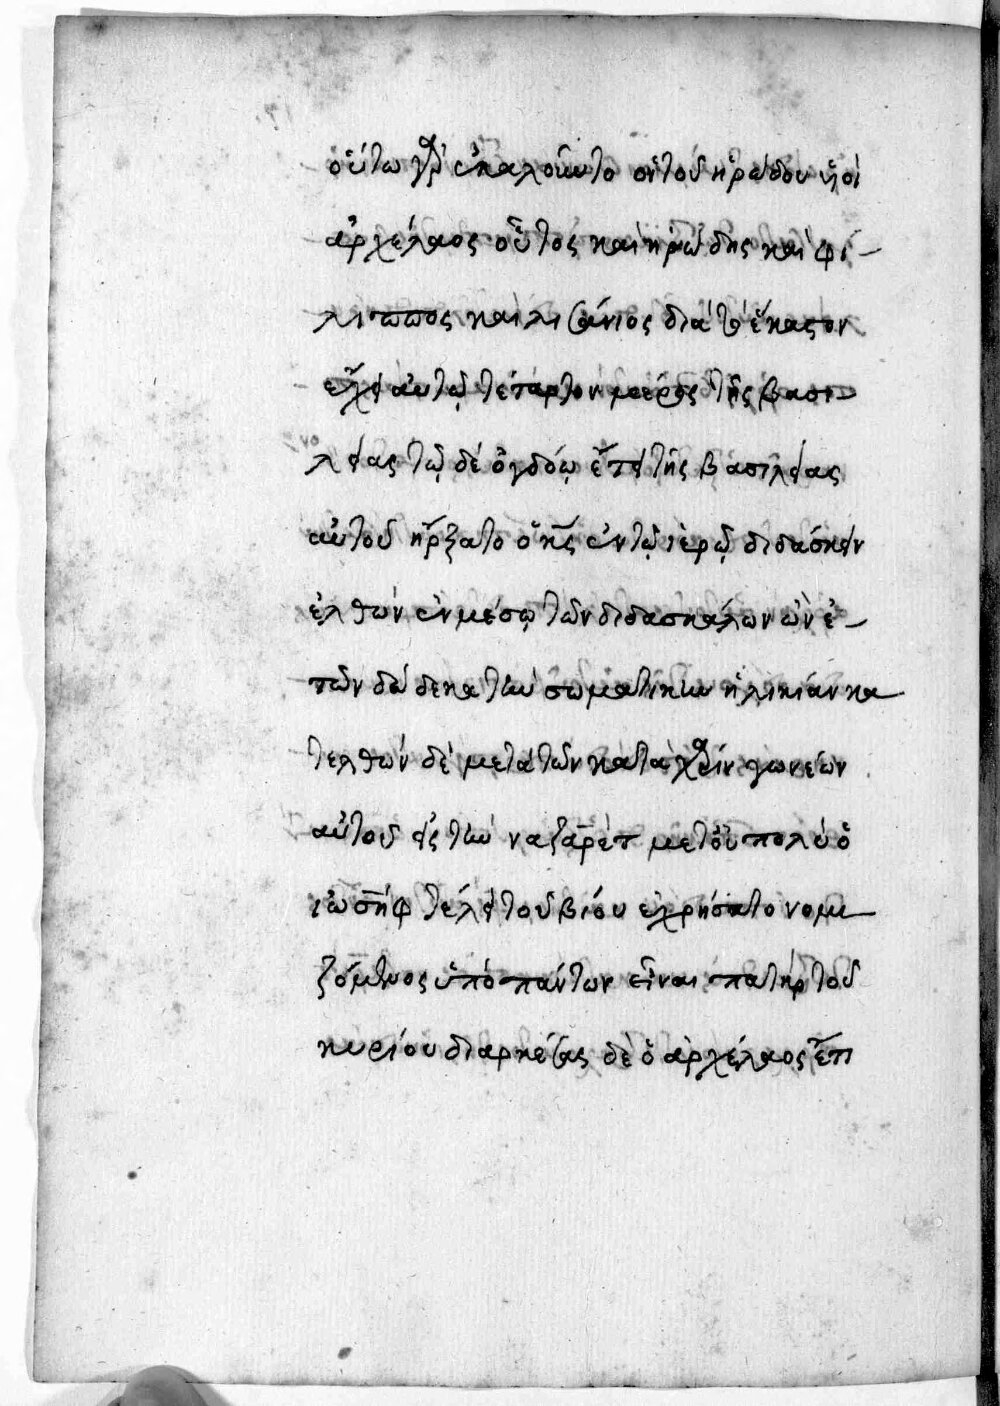 οὕτω γὰρ ἐκαλοῦντο οἱ τοῦ ἡρώδου υἱοί
ἀρχέλαος οὗτος καὶ ἡρώδης καὶ φί
λιππος καὶ λισάνιος διὰ τὸ ἕκαστον
εἶχε αὐτῶ τέταρτον μέρος τῆς βασι
λείας τῶ δὲ ὀγδόω ἔτει τῆς βασιλείας
αὐτοῦ ἤρξατο ὁ κς ἐν τῶ ἱερῶ διδάσκειν
ἐλθὼν ἐν μέσω τῶν διδασκάλων ὢν ἐ
τῶν δώδεκα τὴν σωματικὴν ἡλικίαν κα
τελθών δὲ μετὰ τῶν κατὰ χάριν γονέων
αὐτοῦ εἰς τὴν ναζαρέτ μετ οὐ πολὺ ὁ
ἰωσὴφ τέλει τοῦ βίου ἐχρήσατο νομι
ζόμενος ὑπὸ πάντων εἶναι πατὴρ τοῦ
κυρίου διαρκέσας δὲ ὁ ἀρχέλαος ἔτι